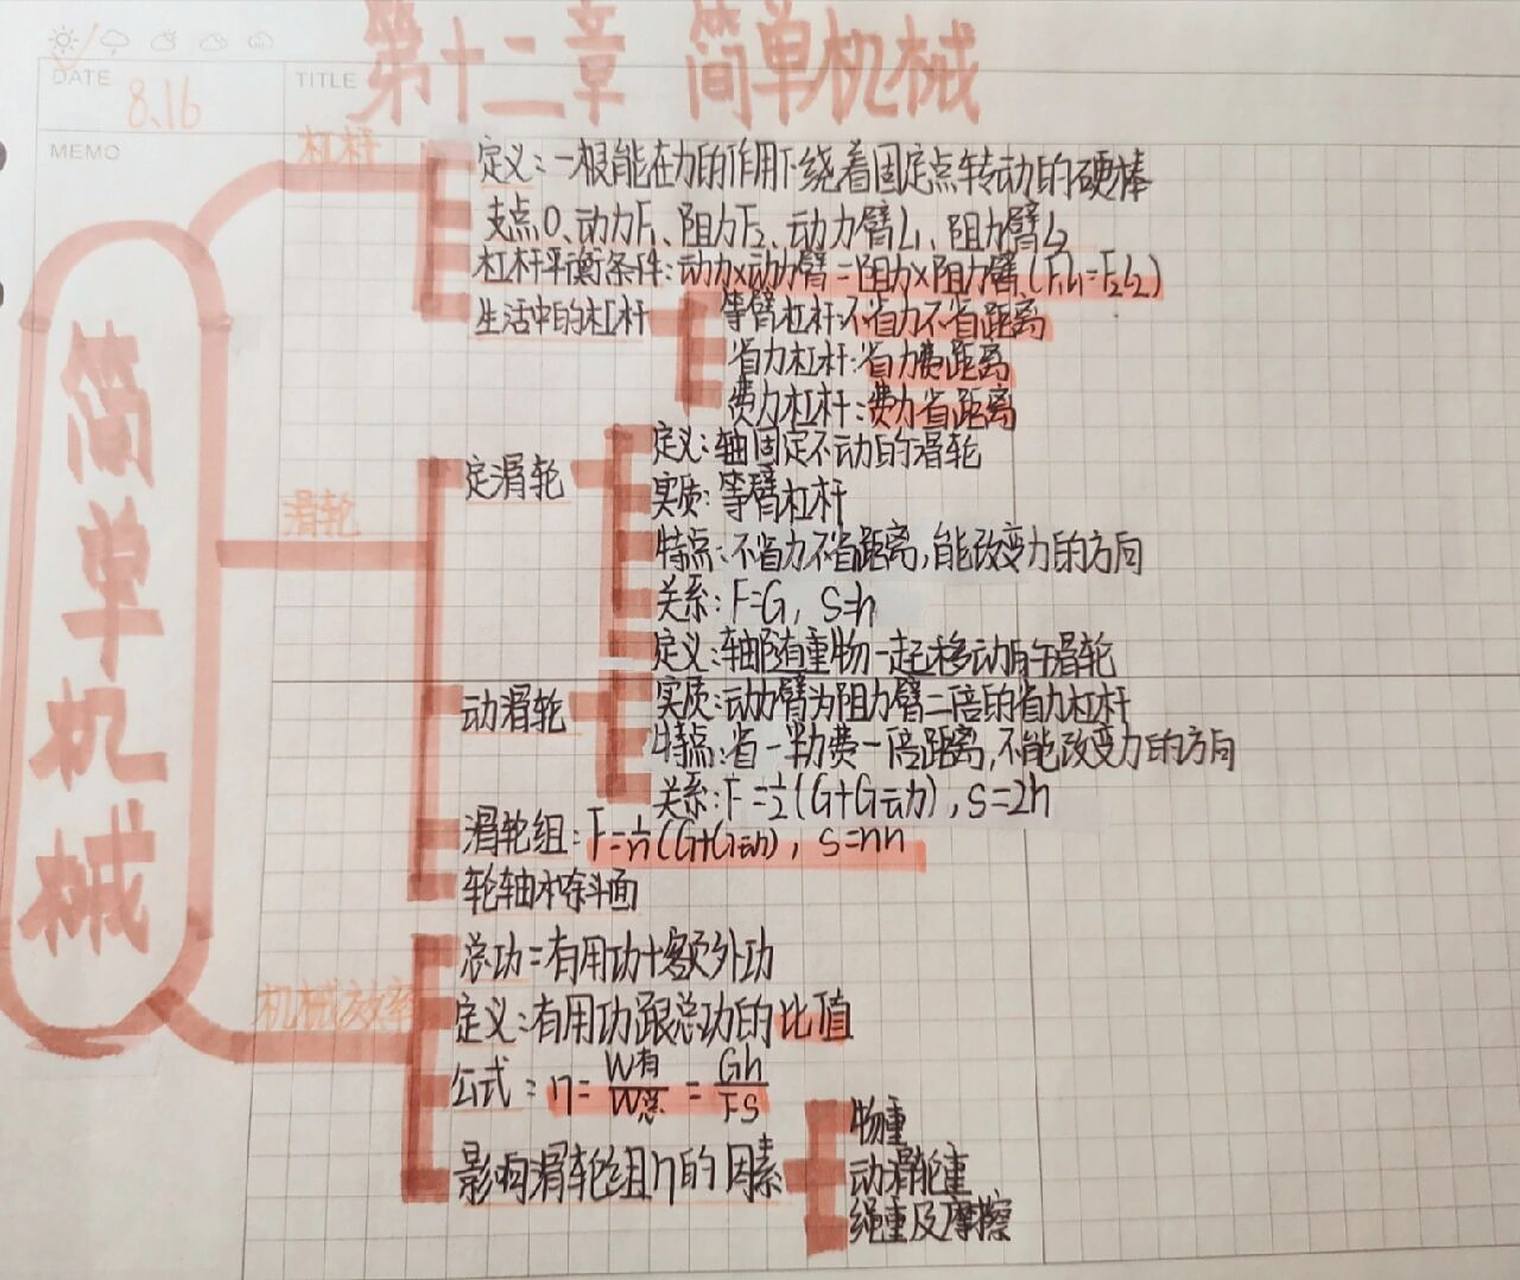 第十二章 简单机械
DATE
8.16
TITLE
MEMO
简单机械
杠杆
定义:一根能在力的作用下绕着固定点转动的硬棒
支点O、动力F₁、阻力F₂、动力臂L₁、阻力臂L₂
杠杆平衡条件:动力×动力臂=阻力×阻力臂(F₁L₁=F₂L₂)
生活中的杠杆
等臂杠杆:不省力不省距离
省力杠杆:省力费距离
费力杠杆:费力省距离
滑轮
定滑轮
定义:轴固定不动的滑轮
实质:等臂杠杆
特点:不省力不省距离,能改变力的方向
关系:F=G, S=h
动滑轮
定义:轴随有重物一起移动的滑轮
实质:动力臂为阻力臂二倍的省力杠杆
特点:省一半力费一倍距离,不能改变力的方向
关系:F=½(G+G动), S=2h
滑轮组:F=1/n(G+G动), S=nh
轮轴和斜面
机械效率
总功=有用功+额外功
定义:有用功跟总功的比值
公式:η=W有/W总=Gh/FS
影响滑轮组η的因素
物重
动滑轮重
绳重及摩擦